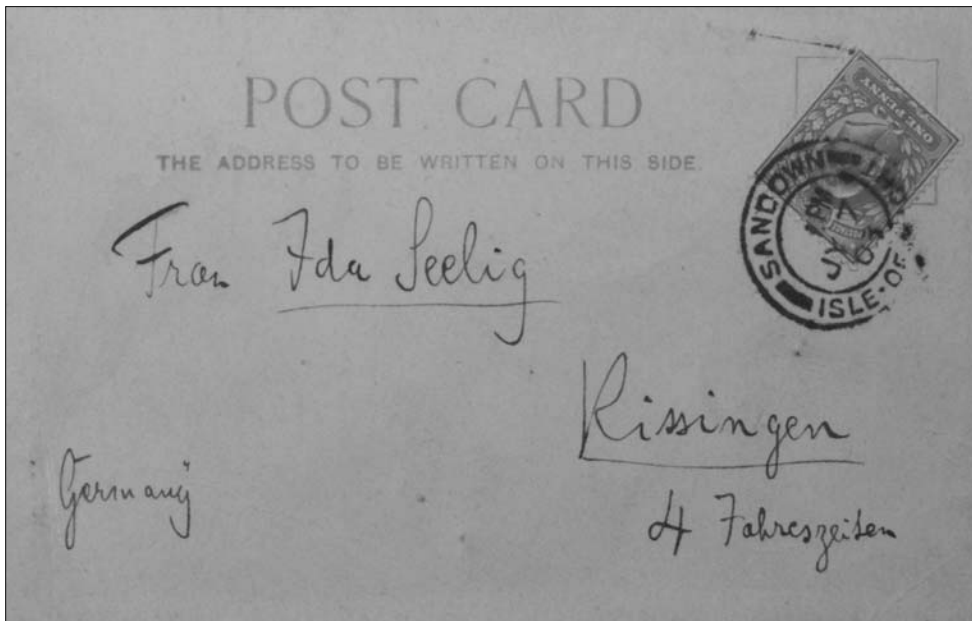 POST CARD
THE ADDRESS TO BE WRITTEN ON THIS SIDE.
ONE PENNY
SANDOWN
ISLE-OF
Frau Ida Seelig
Kissingen
4 Jahreszeiten
Germanÿ